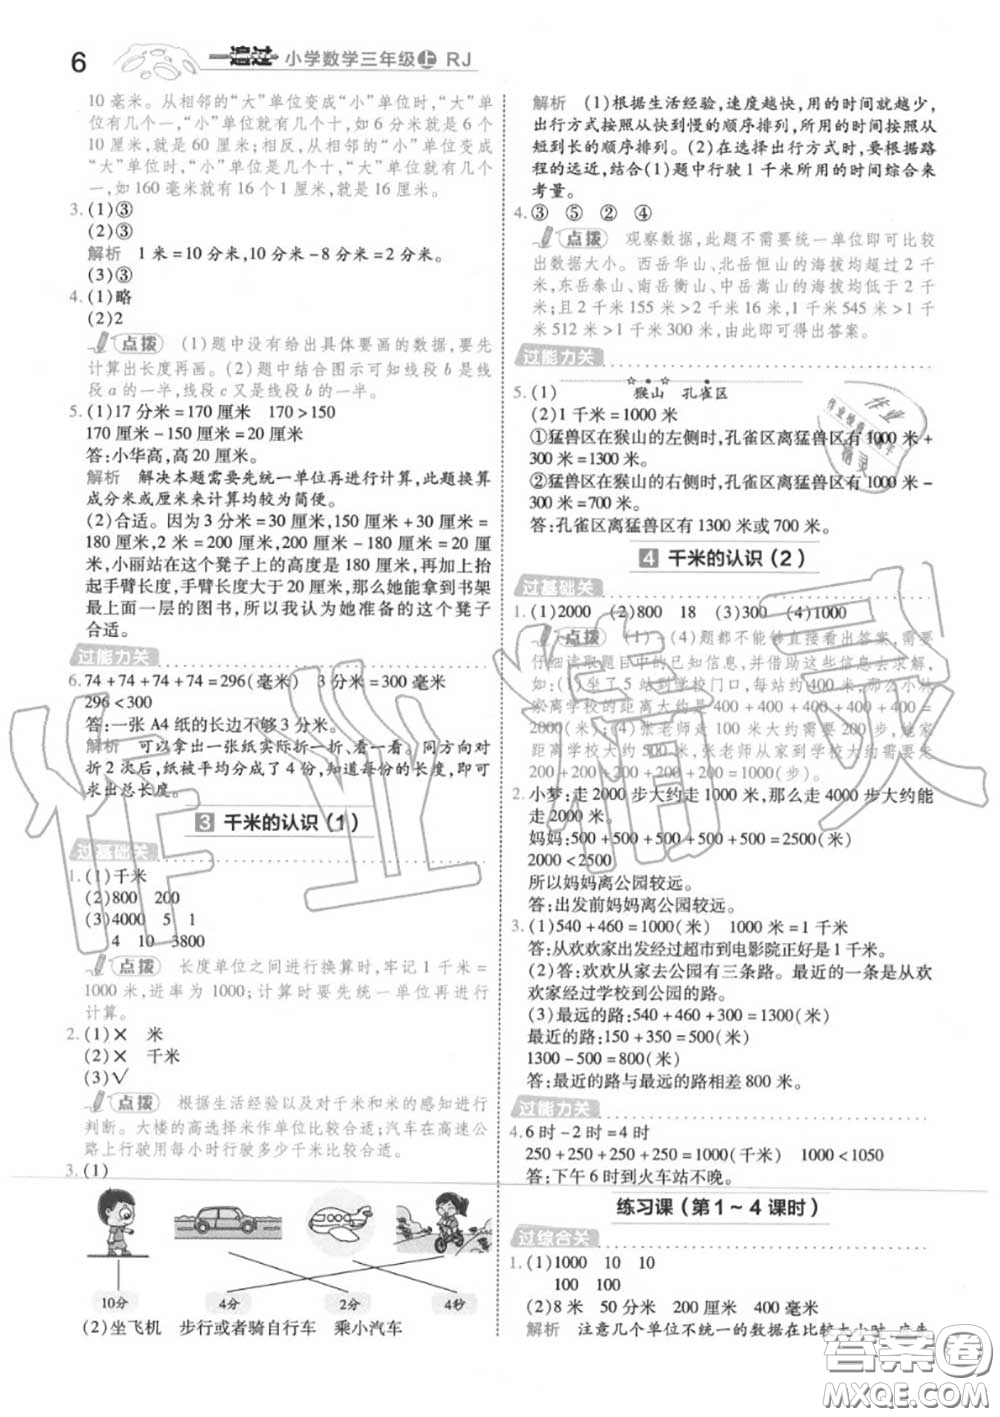 6 一遍过 小学数学三年级上 RJ
10 毫米。从相邻的“大”单位变成“小”单位时,“大”单
位有几个一,“小”单位就有几个十,如 6 分米就是 6 个
10 厘米,就是 60 厘米;相反,从相邻的“小”单位变成
“大”单位时,“小”单位是几个十,“大”单位就有几个
一,如 160 毫米就有 16 个 1 厘米,就是 16 厘米。
3. (1)③
(2)③
解析 1 米=10 分米,10 分米-8 分米=2 分米。
(3)③
4. (1)略
(2)2
点拨 (1)题中没有给出具体要画的数据,要先
计算出长度再画。(2)题中结合图示可知线段 b 是线
段 a 的一半,线段 c 又是线段 b 的一半。
5. (1)17 分米=170 厘米 170>150
170 厘米-150 厘米=20 厘米
答:小华高,高 20 厘米。
解析 解决本题需要先统一单位再进行计算,此题换算
成分米或厘米来计算均较为简便。
(2)合适。因为 3 分米=30 厘米,150 厘米+30 厘米=
180 厘米,2 米=200 厘米,200 厘米-180 厘米=20 厘
米,小丽站在这个凳子上的高度是 180 厘米,再加上抬
起手臂的长度,手臂长度大于 20 厘米,那么她能拿到书架
最上面一层的图书,所以我认为她准备的这个凳子
合适。
过能力关
6. 74+74+74+74=296(毫米) 3 分米=300 毫米
296<300
答:一张 A4 纸的长边不够 3 分米。
解析 可以拿出一张纸实际折一折、看一看。同方向对
折 2 次后,纸被平均分成了 4 份,知道每份的长度,即可
求出总长度。
3 千米的认识(1)
过基础关
1. (1)千米
(2)800 200
(3)4000 5 1
4 10 3800
点拨 长度单位之间进行换算时,牢记 1 千米=
1000 米,进率为 1000;计算时要先统一单位再进行
计算。
2. (1)× 米
(2)× 千米
(3)√
点拨 根据生活经验以及对千米和米的感知进行
判断。大楼的高选择米作单位比较合适;汽车在高速公
路上行驶用每小时行驶多少千米比较合适。
3. (1)
10分 4分 2分 4秒
(2)坐飞机 步行或者骑自行车 乘小汽车
解析 (1)根据生活经验,速度越快,用的时间就越少,
出行方式按照从快到慢的顺序排列,所用的时间按照从
短到长的顺序排列。(2)在选择出行方式时,要根据路
程的远近,结合(1)题中行驶 1 千米所用的时间综合来
考量。
4. ③ ⑤ ② ④
点拨 观察数据,此题不需要统一单位即可比较
出数据大小。西岳华山、北岳恒山的海拔均超过 2 千
米,东岳泰山、南岳衡山、中岳嵩山的海拔均低于 2 千
米;且 2 千米 155 米>2 千米 16 米,1 千米 545 米>1 千
米 512 米>1 千米 300 米,由此即可得出答案。
过能力关
5. (1) 猴山 孔雀区
(2)1 千米=1000 米
①猛兽区在猴山的左侧时,孔雀区离猛兽区有 1000 米+
300 米=1300 米。
②猛兽区在猴山的右侧时,孔雀区离猛兽区有 1000 米-
300 米=700 米。
答:孔雀区离猛兽区有 1300 米或 700 米。
4 千米的认识(2)
过基础关
1. (1)2000 (2)800 18 (3)300 (4)1000
点拨 (1)-(4)题都不能够直接看出答案,需要
仔细读取题目中的已知信息,并借助这些信息去求解,
如:(1)坐了 5 站到学校门口,每站约 400 米,那么小林
家离学校的距离大约是 400+400+400+400+400=
2000(米);(4)张老师走 100 米大约需要 200 步,该家
距离学校大约 500 米,张老师从家到学校大约要走
200+200+200+200+200=1000(步)。
2. 小梦:走 2000 步大约走 1000 米,那么走 4000 步大约能
走 2000 米。
妈妈:500+500+500+500+500=2500(米)
2000<2500
所以妈妈离公园较远。
答:出发前妈妈离公园较远。
3. (1)540+460=1000(米) 1000 米=1 千米
答:从欢欢家出发经过超市到电影院正好是 1 千米。
(2)答:欢欢从家去公园有三条路。最近的一条是从欢
欢家经过学校到公园的路。
(3)最远的路:540+460+300=1300(米)
最近的路:150+350=500(米)
1300-500=800(米)
答:最近的路与最远的路相差 800 米。
过能力关
4. 6 时-2 时=4 时
250+250+250+250=1000(千米) 1000<1050
答:下午 6 时到火车站不晚。
练习课(第 1~4 课时)
过综合关
1. (1)1000 10 10
100 100
(2)8 米 50 分米 200 厘米 400 毫米
解析 注意几个单位不统一的数据在比较大小时,应先
作业精灵
答案圈
MXQE.COM